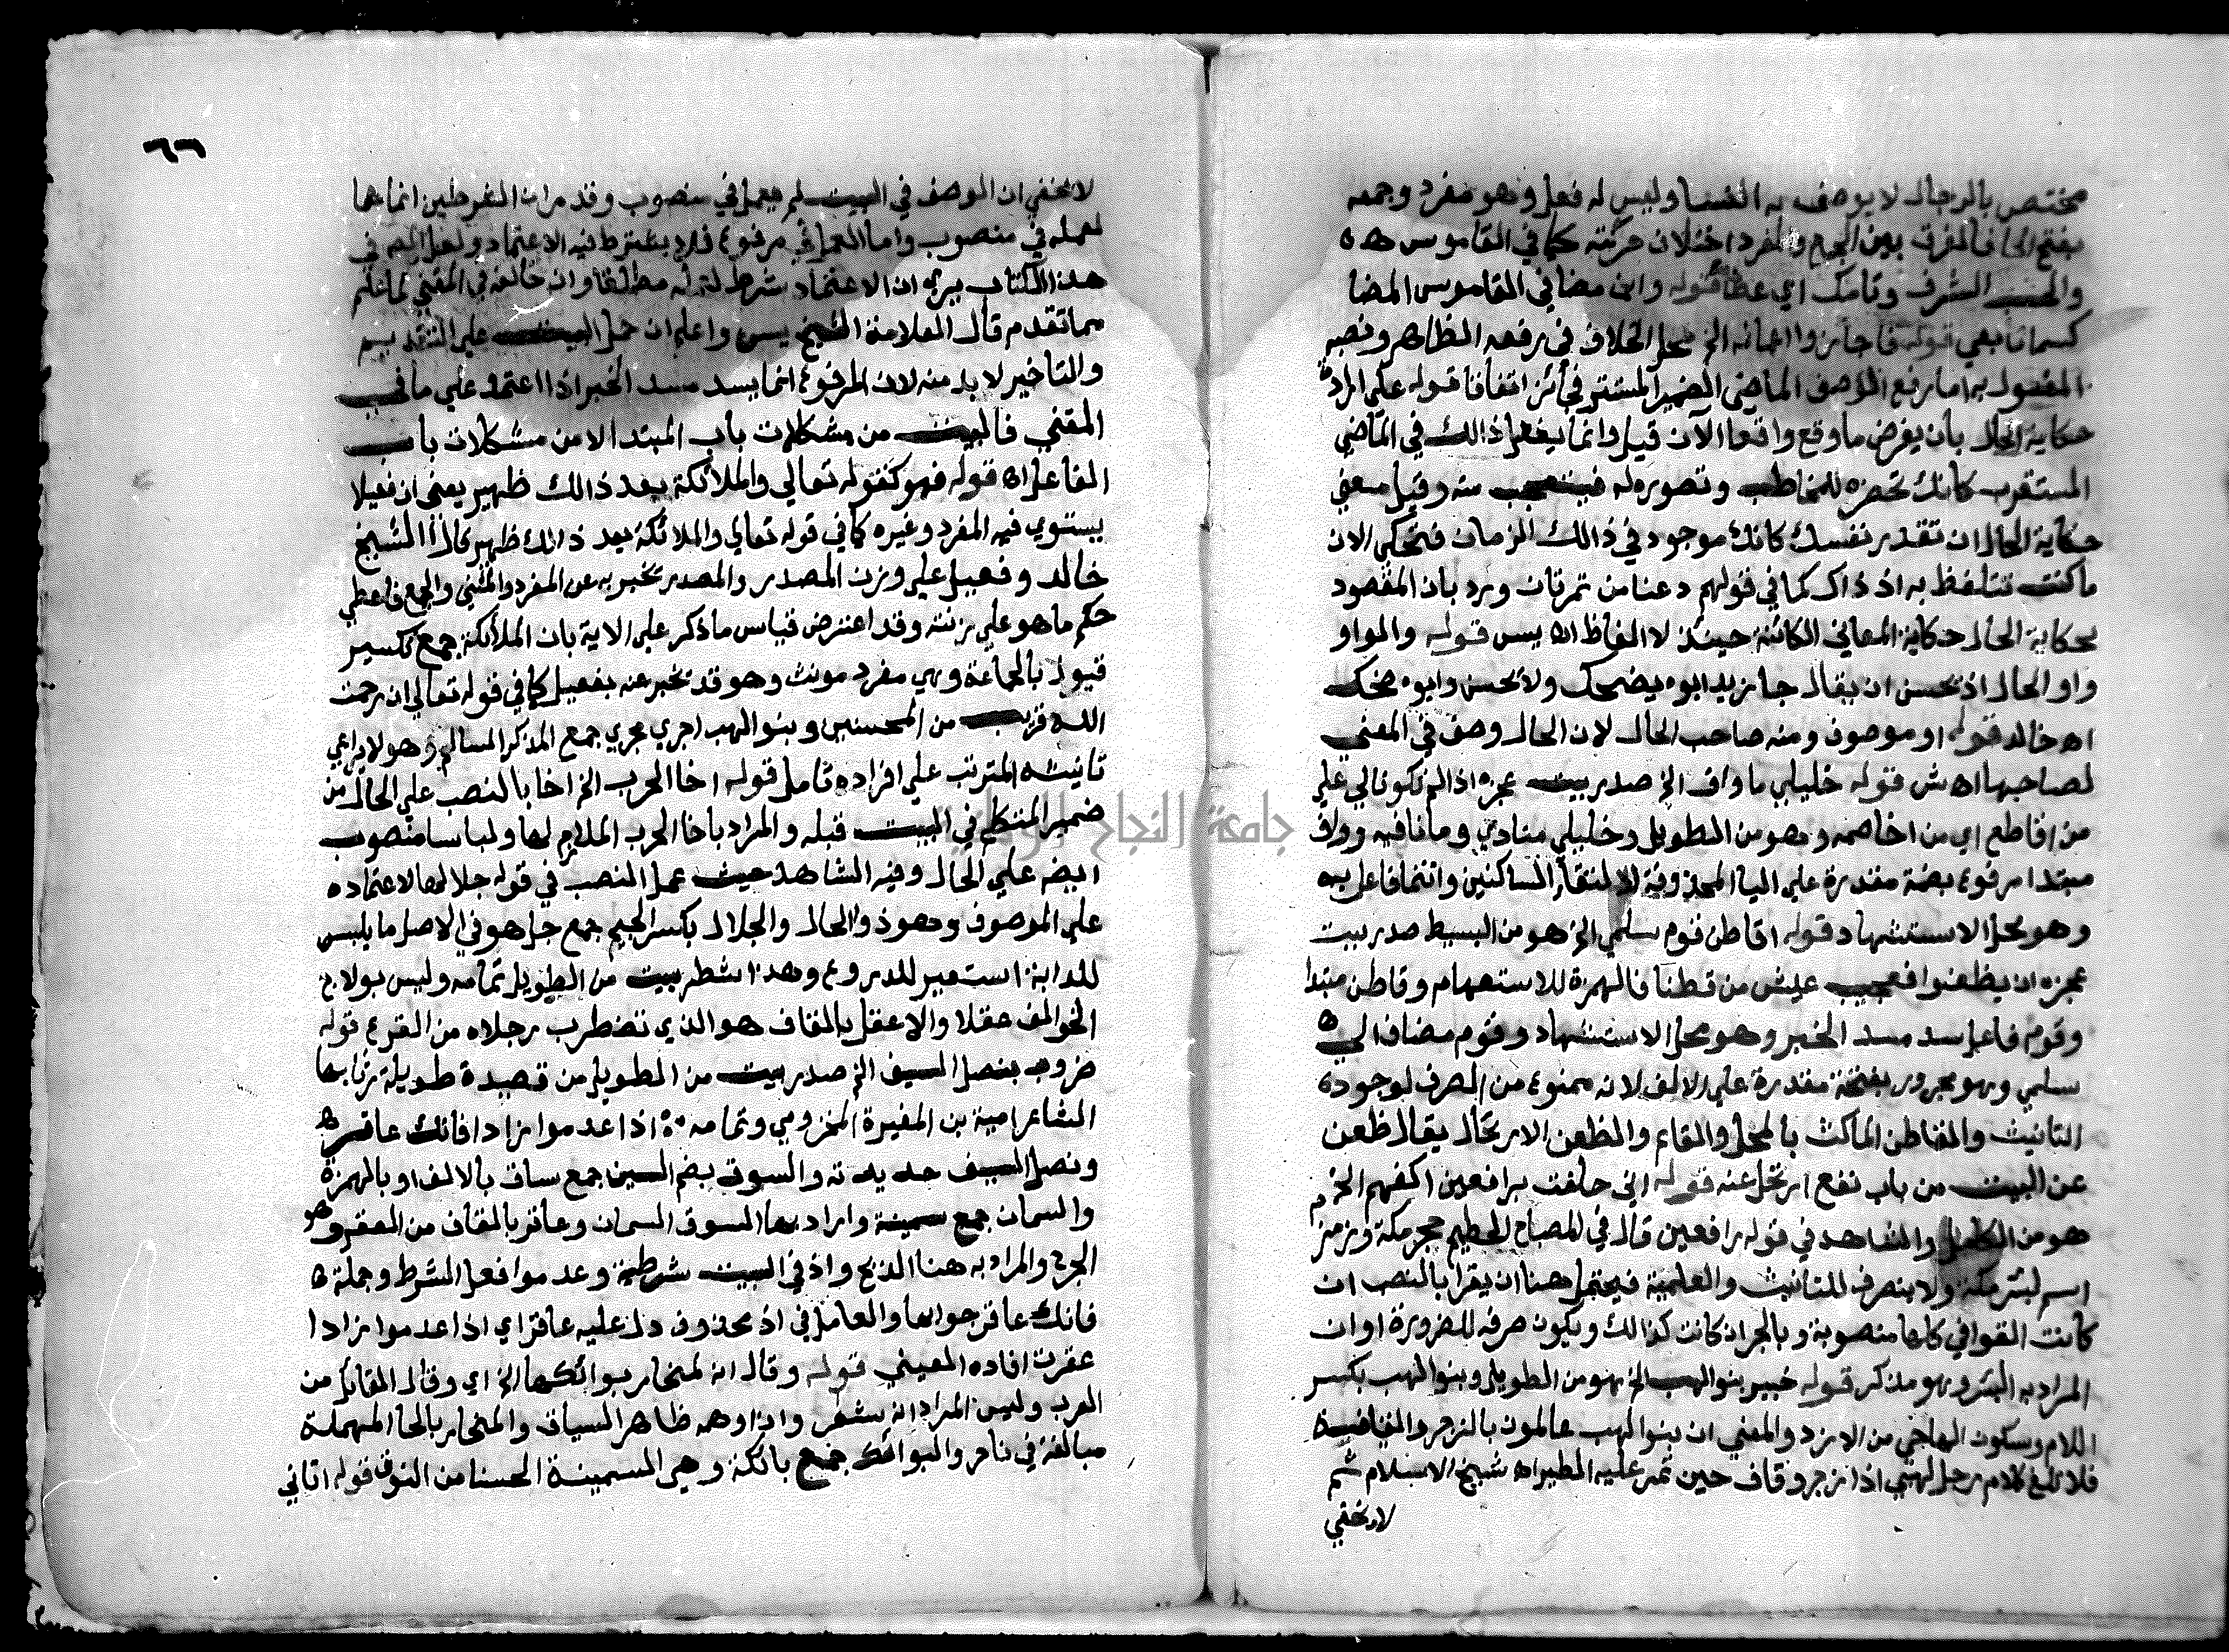 مختص بالرجال لا يوصف به النسا وليس له فعل وهو مفرد وجمعه
بفتح الخا فالفرق بين الجمع والمفرد اختلاف حركته كما في القاموس اه
الشرف وتامك اي عظا قوله وان مضا في القاموس المضا
كسما تابعي قوله قاجاز وااعمانه الخ محل الخلاف في رفعه الظاهر ونصبه
المفعول به اما رفع الوصف الماضي الضمير المستتر فجائز اتفاقا قوله علي اراده
حكاية الحال بان يفرض ما وقع واقعا الآن قيل وانما يفعل ذالك في الماضي
المستغرب كانك تحضره للمخاطب وتصوره له فيتعجب منه وقيل معني
حكاية الحال ان تقدر نفسك كانك موجود في ذالك الزمان فتحكي الان
ما كنت تتلفظ به اذ ذاك كما في قولهم دعنا من تمرتان ورد بان المقصود
بحكاية الحال حكاية المعاني الكائنة حينئذ لا الفاظ اه يس قوله والواو
واو الحال اذ يحسن ان يقال جا زيد ابوه يضحك ولا يحسن وابوه ضحك
اه خالد قوله او موصوف ومنه صاحب الحال لان الحال وصف في المعني
لصاحبها اه ش قوله خليلي ما واف الخ صدر بيت عجزه اذا لم تكونا لي علي
من اقاطع اي من اخاصمه وهو من الطويل وخليلي منادي وما نافيه وواف
مبتدا مرفوع بضمة مقدرة علي اليا المحذوفة لالتقأ الساكنين وانتما فاعل به
وهو محل الاستشهاد قوله اقاطن قوم سلمي الخ هو من البسيط صدر بيت
عجزه ان يظعنوا فعجيب عيش من قطنا فالهمزة للاستفهام وقاطن مبتدا
وقوم فاعل سد مسد الخبر وهو محل الاستشهاد وقوم مضاف الي
سلمي وهو مجرور بفتحة مقدرة علي الالف لانه ممنوع من الصرف لوجود
التانيث والقاطن الماكث بالمحل والمقام والظعن الارتحال يقال ظعن
عن البيت من باب نفع ارتحل عنه قوله اني حلفت برافعين اكفهم الخ
هو من الكامل والشاهد في قوله رافعين قال في المصباح الحطيم حجر مكة وزمزم
اسم لبئر مكة ولا ينصرف للتانيث والعلمية فيحتمل هنا ان يقرا بالنصب ان
كانت القوافي كلها منصوبة وبالجر ان كانت كذالك ويكون صرفه للضرورة او ان
المراد به البئر وهو مذكر قوله خبير بنو الهب الخ هو من الطويل وبنو الهب بكسر
اللام وسكون الها حي من الازد والمعني ان بنو الهب عالمون بالزجر والقيافة
فلا تلغ كلام رجل لهبي اذا زجر وقاف حين تمر عليه الطير اه شيخ الاسلام ثم
لا يخفي
٦٦
لا يخفي ان الوصف في البيت لم يعمل في منصوب وقد مر ان الشرطين انما هما
لعمله في منصوب واما العمل في مرفوع فلا يشترط فيه الاعتماد ولعل المص في
هذا الكتاب يري ان الاعتماد شرط لعمله مطلقا وان خالفه في المغني كما علم
مما تقدم قال العلامة الشيخ يس واعلم ان حمل البيت علي التقديم
والتاخير لا بد منه لان المرفوع انما يسد مسد الخبر اذا اعتمد علي ما في
المغني فالبيت من مشكلات باب المبتدا لا من مشكلات باب
الفاعل اه قوله فهو كقوله تعالي والملائكة بعد ذالك ظهير يعني ان فعيلا
يستوي فيه المفرد وغيره كما في قوله تعالي والملائكة بعد ذالك ظهير قال الشيخ
خالد وفعيل علي وزن المصدر والمصدر يخبر به عن المفرد والمثني والجمع فاعطي
حكم ما هو علي زنته وقد اعترض قياس ما ذكر علي الاية بان الملائكة جمع تكسير
فيول بالجماعة وهي مفرد مونث وهو قد يخبر عنه بفعيل كما في قوله تعالي ان رحمت
الله قريب من المحسنين وبنو الهب اجري مجري جمع المذكر السالم وهو لا يراعي
تانيثه المترتب علي افراده تامل قوله اخا الحرب الخ اخا بالنصب علي الحال من
ضمير المتكلم في البيت قبله والمراد باخا الحرب الملازم لها ولباسا منصوب
ايضه علي الحال وفيه الشاهد حيث عمل النصب في قوله جلالها لاعتماده
علي الموصوف وهو ذو الحال والجلال بكسر الجيم جمع جل هو في الاصل ما يلبس
للدابة استعير للدروع وهذا شطر بيت من الطويل تمامه وليس بولاج
الخوالف عقلا والاعقل بالقاف هو الذي تضطرب رجلاه من الفزع قوله
ضروب بنصل السيف الخ صدر بيت من الطويل من قصيدة طويلة رثا بها
الشاعر امية بن المغيرة المخزومي وتمامه اذا عدموا زادا فانك عاقر
ونصل السيف حديدته والسوق بضم السين جمع ساق بالالف او بالهمزة
والسمان جمع سمينة واراد بها السوق السمان وعاقر بالقاف من العقر وهو
الجرح والمراد به هنا الذبح واذ في البيت شرطية وعدموا فعل الشرط وجملة
فانك عاقر جوابها والعامل في اذ محذوف دل عليه عاقر اي اذا عدموا زادا
عقرت افاده العيني قوله وقال انه لمنحار بوائكها الخ اي وقال القائل من
العرب وليس المراد انه شطر وان اوهمه ظاهر السياق والمنحار بالحا المهملة
مبالغة في ناحر والبوائك جمع بائكة وهي السمينة الحسنا من النوق قوله اتاني
جامعة النجاح الوطنية